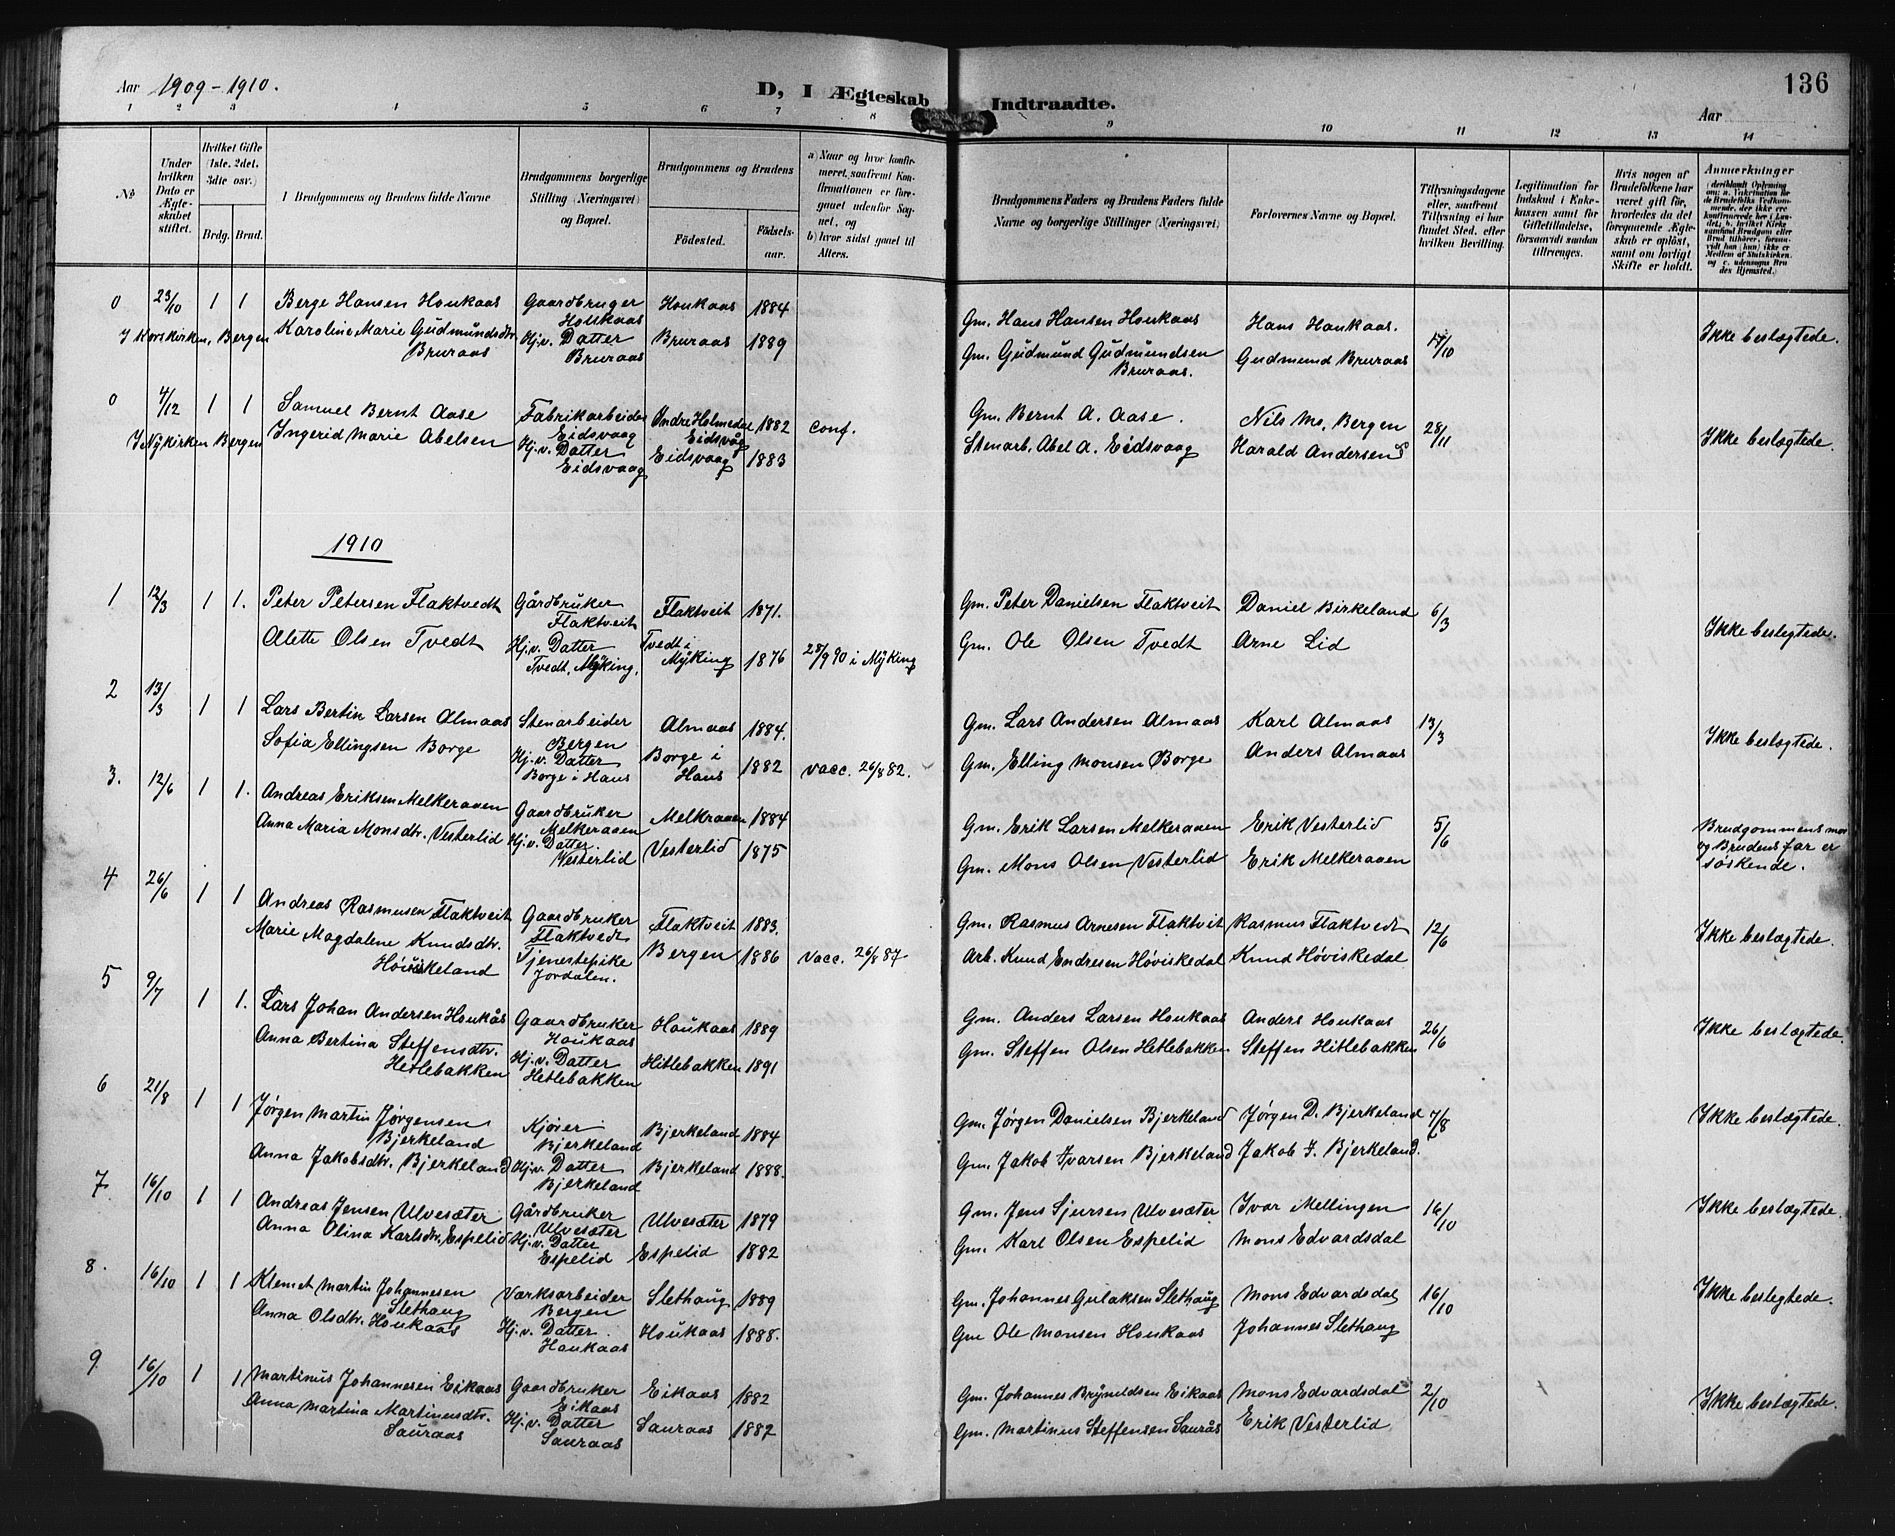 136
Aar 1909-1910.
D, I Ægteskab Indtraadte.
Aar
1 2 3 4 5 6 7 8 9 10 11 12 13 14
No
Under hvilken Dato er Ægteskabet stiftet.
Hvilket Gifte (1ste, 2det, 3die osv.)
Brdg. Brud.
Brudgommens og Brudens fulde Navne
Brudgommens borgerlige Stilling (Næringsvei) og Bopæl.
Brudgommens og Brudens
Fødested. Fødselsaar.
a) Naar og hvor konfirmeret, saafremt Konfirmationen er foregaaet udenfor Sognet, og
b) hvor sidst gaaet til Alters.
Brudgommens Faders og Brudens Faders fulde Navne og borgerlige Stillinger (Næringsvei)
Forlovernes Navne og Bopæl.
Tillysningsdagene eller, saafremt Tillysning ei har fundet Sted, efter hvilken Bevilling.
Legitimation for Indskud i Enkekassen samt for Giftetilladelse, forsaavidt saadan tiltrænges.
Hvis nogen af Brudefolkene har været gift før, hvorledes da det foregaaende Ægteskab er opløst, samt om lovligt Skifte er holdt.
Anmærkninger
0 23/10 1 1 Berge Hansen Houkaas Gaardbruger Houkaas Houkaas 1884 Gm. Hans Hansen Houkaas Hans Houkaas. 17/10 Ikke beslægtede.
I Korskirken, Bergen Karoline Marie Gudmundsdtr. Bruraas Hj.v. Datter Bruraas Bruraas 1889 Gm. Gudmund Gudmundsen Bruraas. Gudmund Bruraas
0 4/12 1 1 Samuel Bernt Aase Fabrikarbeider Eidsvaag Indre Holmedal Eidsvåg 1882 conf. Gm. Bernt A. Aase. Nils Ms. Bergen 28/11 Ikke beslægtede.
I Nykirken Bergen Ingerid Marie Abelsen Hj.v. Datter Eidsvaag Eidsvaag 1883 Stenarb. Abel A. Eidsvaag Harald Andersen
1910
1 12/3 1 1. Peter Petersen Flaktvedt Gårdbruker Flaktveit Flaktveit 1871. Gm. Peter Danielsen Flaktveit Daniel Birkeland 6/3 Ikke beslegtede.
Alette Olsen Tvedt Hj.v. Datter Tvedt, Myking. Tvedt i Myking 1876 28/9 90 i Myking Gm. Ole Olsen Tvedt Arne Lid
2 13/3 1 1 Lars Bertin Larsen Almaas Stenarbeider Bergen Almaas 1884. Gm. Lars Andersen Almaas Karl Almaas 13/3 Ikke beslægtede.
Sofia Ellingsen Borge Hj.v. Datter Borge i Haus Borge i Haus 1882 vacc. 26/8 82. Gm. Elling Monsen Borge Anders Almaas
3. 12/6 1 1. Andreas Eriksen Melkeraaen Gaardbruker Melkeraaen Melkraaen 1884 Gm. Erik Larsen Melkeraaen Erik Vesterlid 5/6 Brudgommens mor og Brudens far er søskende.
Anna Maria Monsdtr. Vesterlid Hj.v. Datter. Vesterlid Vesterlid 1875 Gm. Mons Olsen Vesterlid Erik Melkeraaen
4 26/6 1 1 Andreas Rasmusen Flaktveit Gaardbruker Flaktvedt Flaktveit 1883. Gm. Rasmus Arnesen Flaktveit Rasmus Flaktvedt 12/6 Ikke beslægtede.
Marie Magdalene Knudsdtr. Høviskeland Tjenestepike Jordalen. Bergen 1886 vacc. 26/8 87. Arb. Knud Endresen Høviskedal Knud Høviskedal
5 9/7 1 1. Lars Johan Andersen Houkås Gaardbruker Houkaas Houkaas 1889 Gm. Anders Larsen Houkaas Anders Houkaas 26/6 Ikke beslægtede.
Anna Bertina Steffensdtr. Hetlebakken Hj.v. Datter Hetlebakken Hitlebakken 1891 Gm. Steffen Olsen Hetlebakken Steffen Hitlebakken
6 21/8 1 1 Jørgen Martin Jørgensen Bjerkeland Kjører Bjerkeland Bjerkeland 1884 Gm. Jørgen Danielsen Bjerkeland Jørgen D. Bjerkeland 7/8 Ikke beslægtede.
Anna Jakobsdtr. Bjerkeland Hj.v. Datter Bjerkeland Bjerkeland 1888. Gm. Jakob Ivarsen Bjerkeland Jakob I. Bjerkeland.
7. 16/10 1 1 Andreas Jensen Ulvesæter Gårdbruker Ulvesæter Ulvesæter 1879 Gm. Jens Sjursen Ulvesæter Ivar Mellingen 16/10 Ikke beslægtede.
Anna Olina Karlsdtr. Espelid Hj.v. Datter Espelid Espelid 1882 Gm. Karl Olsen Espelid Mons Edvardsdal
8. 16/10 1 1 Klemet Martin Johannesen Slethaug Værksarbeider Bergen Slethaug 1889 Gm. Johannes Gulaksen Slethaug Mons Edvardsdal 16/10 Ikke beslegtede.
Anna Olsdtr. Houkaas Hj.v. Datter. Houkaas Houkaas 1888. Gm Ole Monsen Houkaas Johannes Slethaug
9 16/10 1 1 Martinus Johannesen Eikaas Gaardbruker Eikaas Eikaas 1882 Gm. Johannes Brynildsen Eikaas Mons Edvardsdal 2/10 Ikke beslægtede.
Anna Martina Martinusdtr. Sauraas Hj.v. Datter Sauraas Sauraas 1882 Gm. Martinus Steffensen Saurås Erik Vesterlid